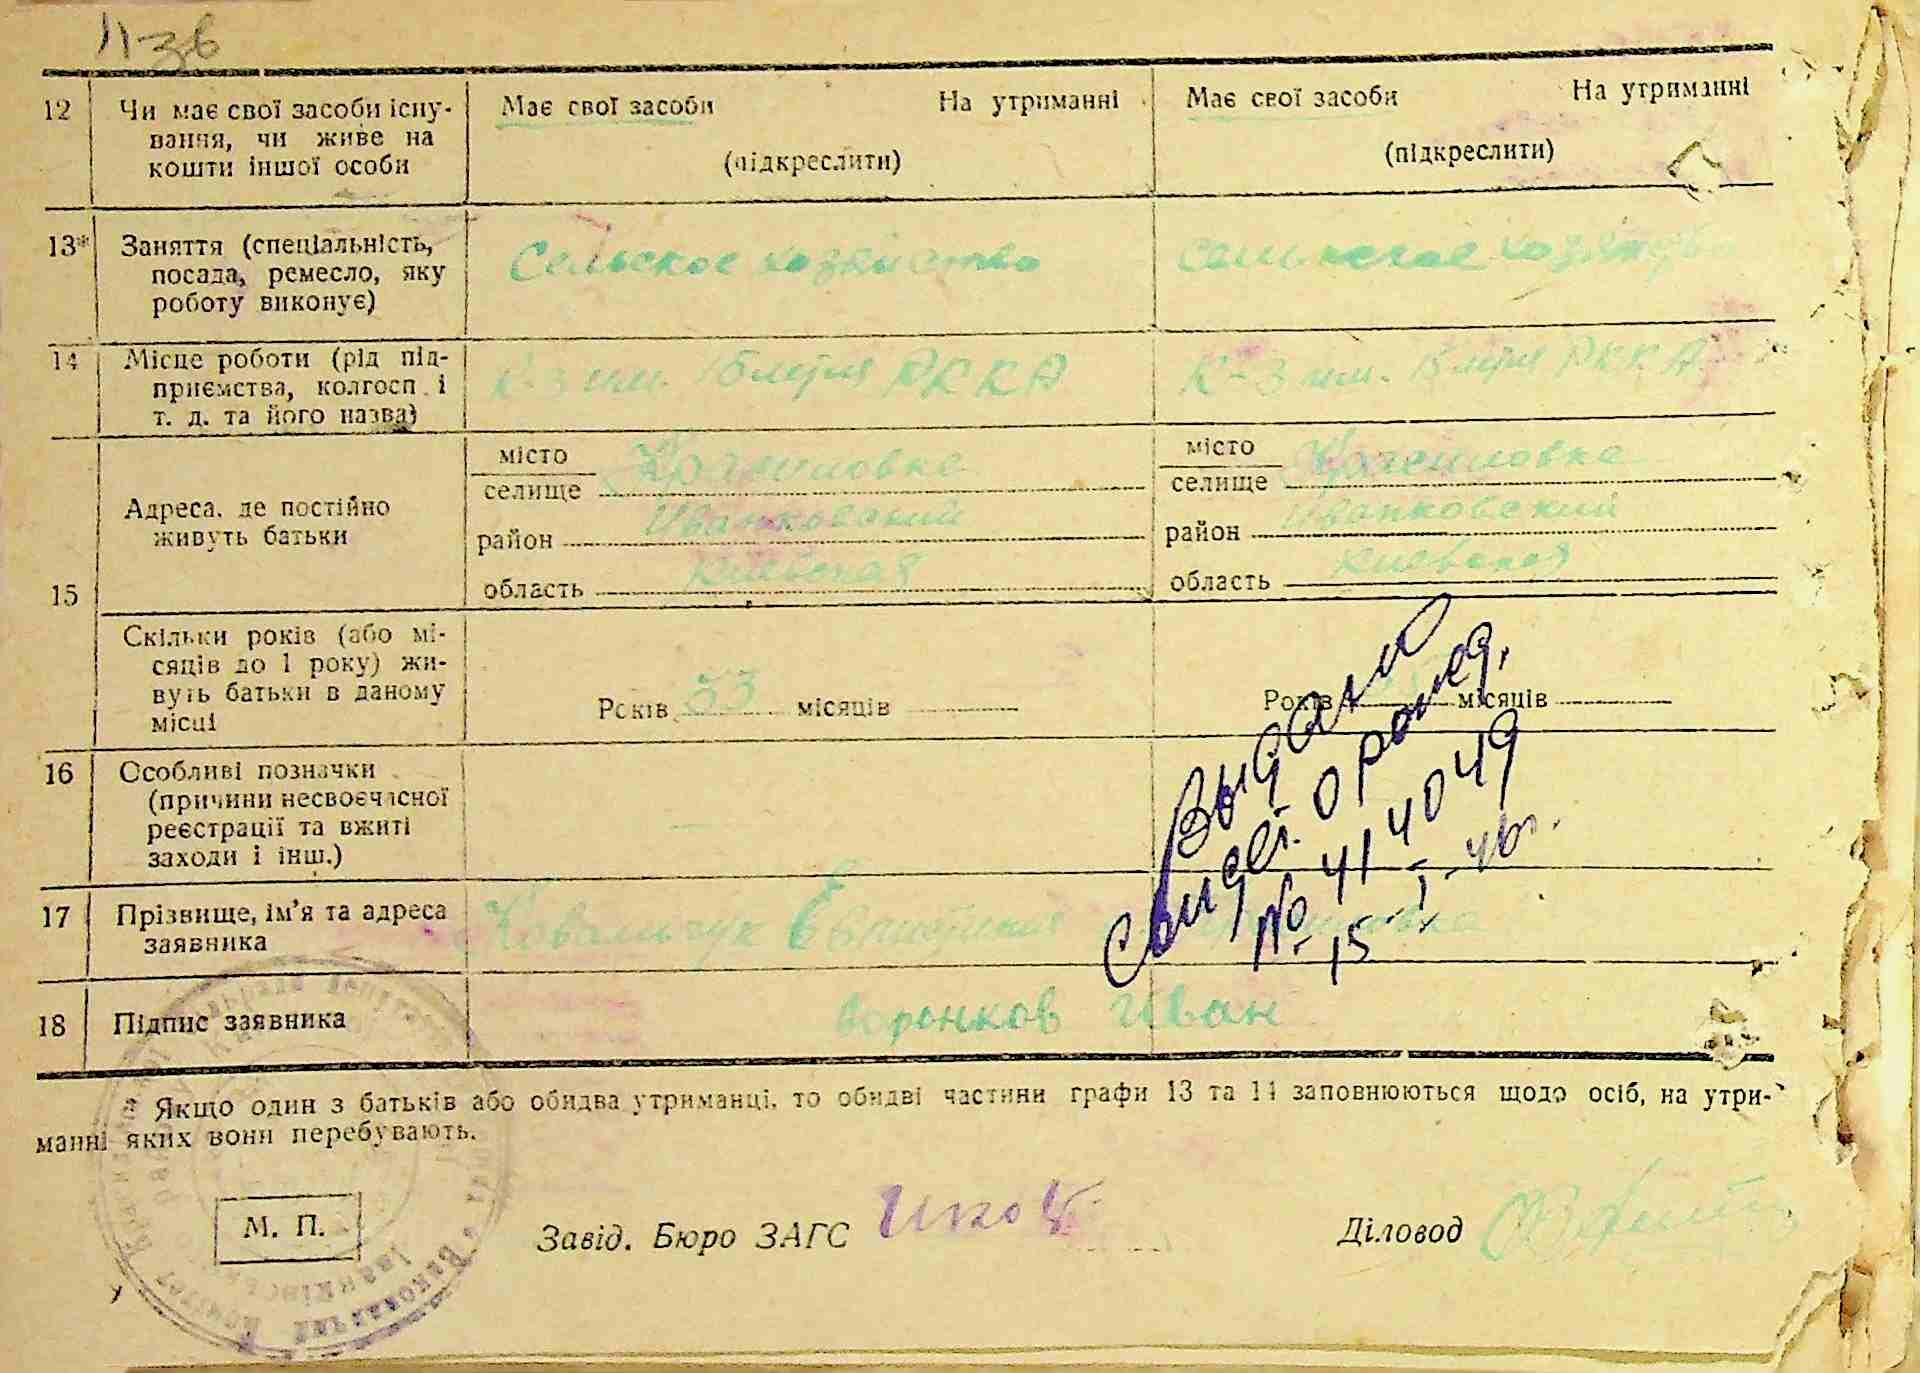 12 Чи має свої засоби існу-
вання, чи живе на
кошти іншої особи
Має свої засоби На утриманні
(підкреслити)
Має свої засоби На утриманні
(підкреслити)
13* Заняття (спеціальність,
посада, ремесло, яку
роботу виконує)
Сельское хозяйство
сельское хозяйство
14 Місце роботи (рід під-
приємства, колгосп і
т. д. та його назва)
К-з им. РККА
К-з им. РККА
15
Адреса, де постійно
живуть батьки
місто
селище
район Иванковский
область Киевская
місто
селище
район Иванковский
область Киевская
Скільки років (або мі-
сяців до 1 року) жи-
вуть батьки в даному
місці
Років 53 місяців
Років місяців
16 Особливі позначки
(причини несвоєчасної
реєстрації та вжиті
заходи і інш.)
Выдано
свидет. о рожд.
№ 414049
-15-I-46г.
17 Прізвище, ім'я та адреса
заявника
Ковальчук
18 Підпис заявника
Воронков Иван
* Якщо один з батьків або обидва утриманці, то обидві частини графи 13 та 14 заповнюються щодо осіб, на утри-
манні яких вони перебувають.
М. П.
Завід. Бюро ЗАГС
Діловод